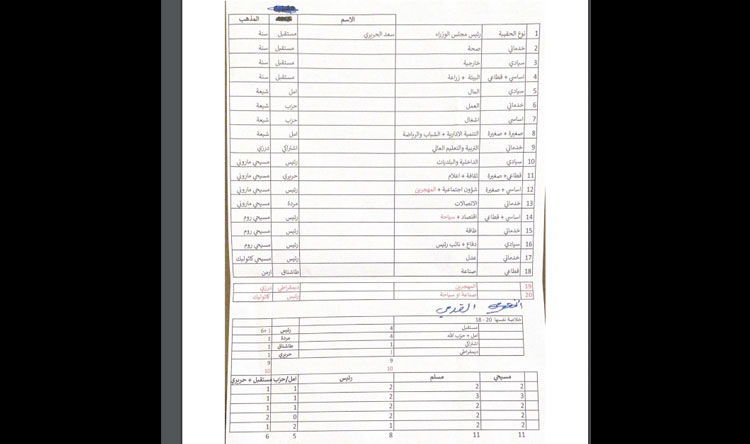 الاسم المذهب
1 نوع الحقيبة رئيس مجلس الوزراء سعد الحريري مستقبل سنة
2 خدماتي صحة مستقبل سنة
3 سيادي خارجية مستقبل سنة
4 اساسي + قطاعي البيئة + زراعة مستقبل سنة
5 سيادي المال امل شيعة
6 خدماتي العمل حزب شيعة
7 اساسي اشغال حزب شيعة
8 صغيرة + صغيرة التنمية الادارية + الشباب والرياضة امل شيعة
9 خدماتي التربية والتعليم العالي اشتراكي درزي
10 سيادي الداخلية والبلديات رئيس مسيحي ماروني
11 قطاعي+ صغيرة ثقافة + اعلام حريري مسيحي ماروني
12 اساسي + صغيرة شؤون اجتماعية + المهجرين رئيس مسيحي ماروني
13 خدماتي الاتصالات مردة مسيحي ماروني
14 اساسي + قطاعي اقتصاد + سياحة رئيس مسيحي روم
15 خدماتي طاقة رئيس مسيحي روم
16 سيادي دفاع + نائب رئيس رئيس مسيحي روم
17 خدماتي عدل رئيس مسيحي كاثوليك
18 قطاعي صناعة طاشناق ارمن
19 المهجرين ديمقراطي درزي
20 صناعة او سياحة رئيس كاثوليك
خلاصة نفسها: 20 - 18
مستقبل 4 رئيس 6+1
امل + حزب الله 4 مردة 1
اشتراكي 1 طاشناق 1
ديمقراطي 1 حريري 1
9 9
10 10
مسيحي مسلم رئيس امل/حزب مستقبل + حريري
2 2 2 1 1
3 3 2 1 1
2 2 2 1 1
2 2 2 0 2
2 2 1 2 1
11 11 8 5 6